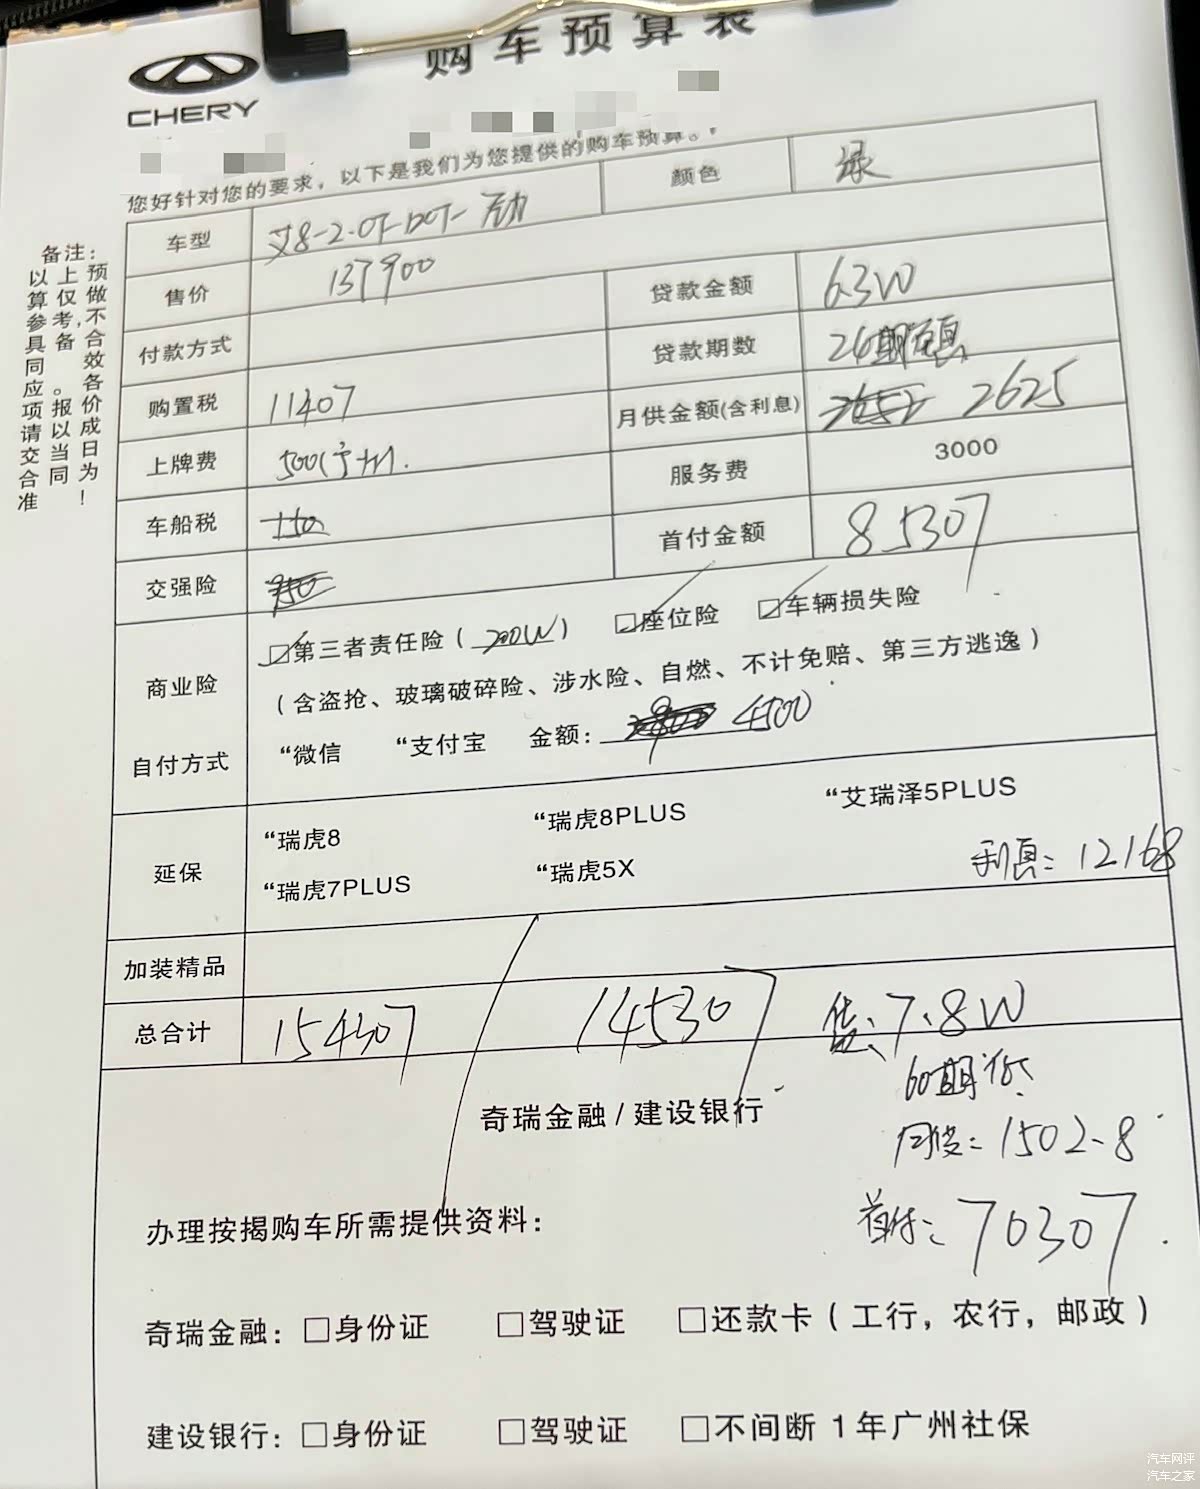 购车预算表
CHERY
您好针对您的要求，以下是我们为您提供的购车预算。
备注：
以上预
算仅做
参考,不
具备合
同 效
应。各
项报价
请以成
交当日
合同为
准 ！
车型 艾8-2.0T-DCT- 颜色 绿
售价 137900 贷款金额 6.3W
付款方式 贷款期数 24期
购置税 11407 月供金额(含利息) 2625
上牌费 500 服务费 3000
车船税 首付金额 85307
交强险
商业险 ☑第三者责任险（200W） ☑座位险 ☑车辆损失险
（含盗抢、玻璃破碎险、涉水险、自燃、不计免赔、第三方逃逸）
自付方式 “微信 “支付宝 金额： 4500
延保 “瑞虎8 “瑞虎8PLUS “艾瑞泽5PLUS
“瑞虎7PLUS “瑞虎5X 利息：12168
加装精品
总合计 154307 / 145307 贷：7.8W
60期
奇瑞金融/建设银行
月供：1502.8
办理按揭购车所需提供资料：
首付：70307
奇瑞金融：□身份证 □驾驶证 □还款卡（工行，农行，邮政）
建设银行：□身份证 □驾驶证 □不间断 1年广州社保
汽车网评
汽车之家